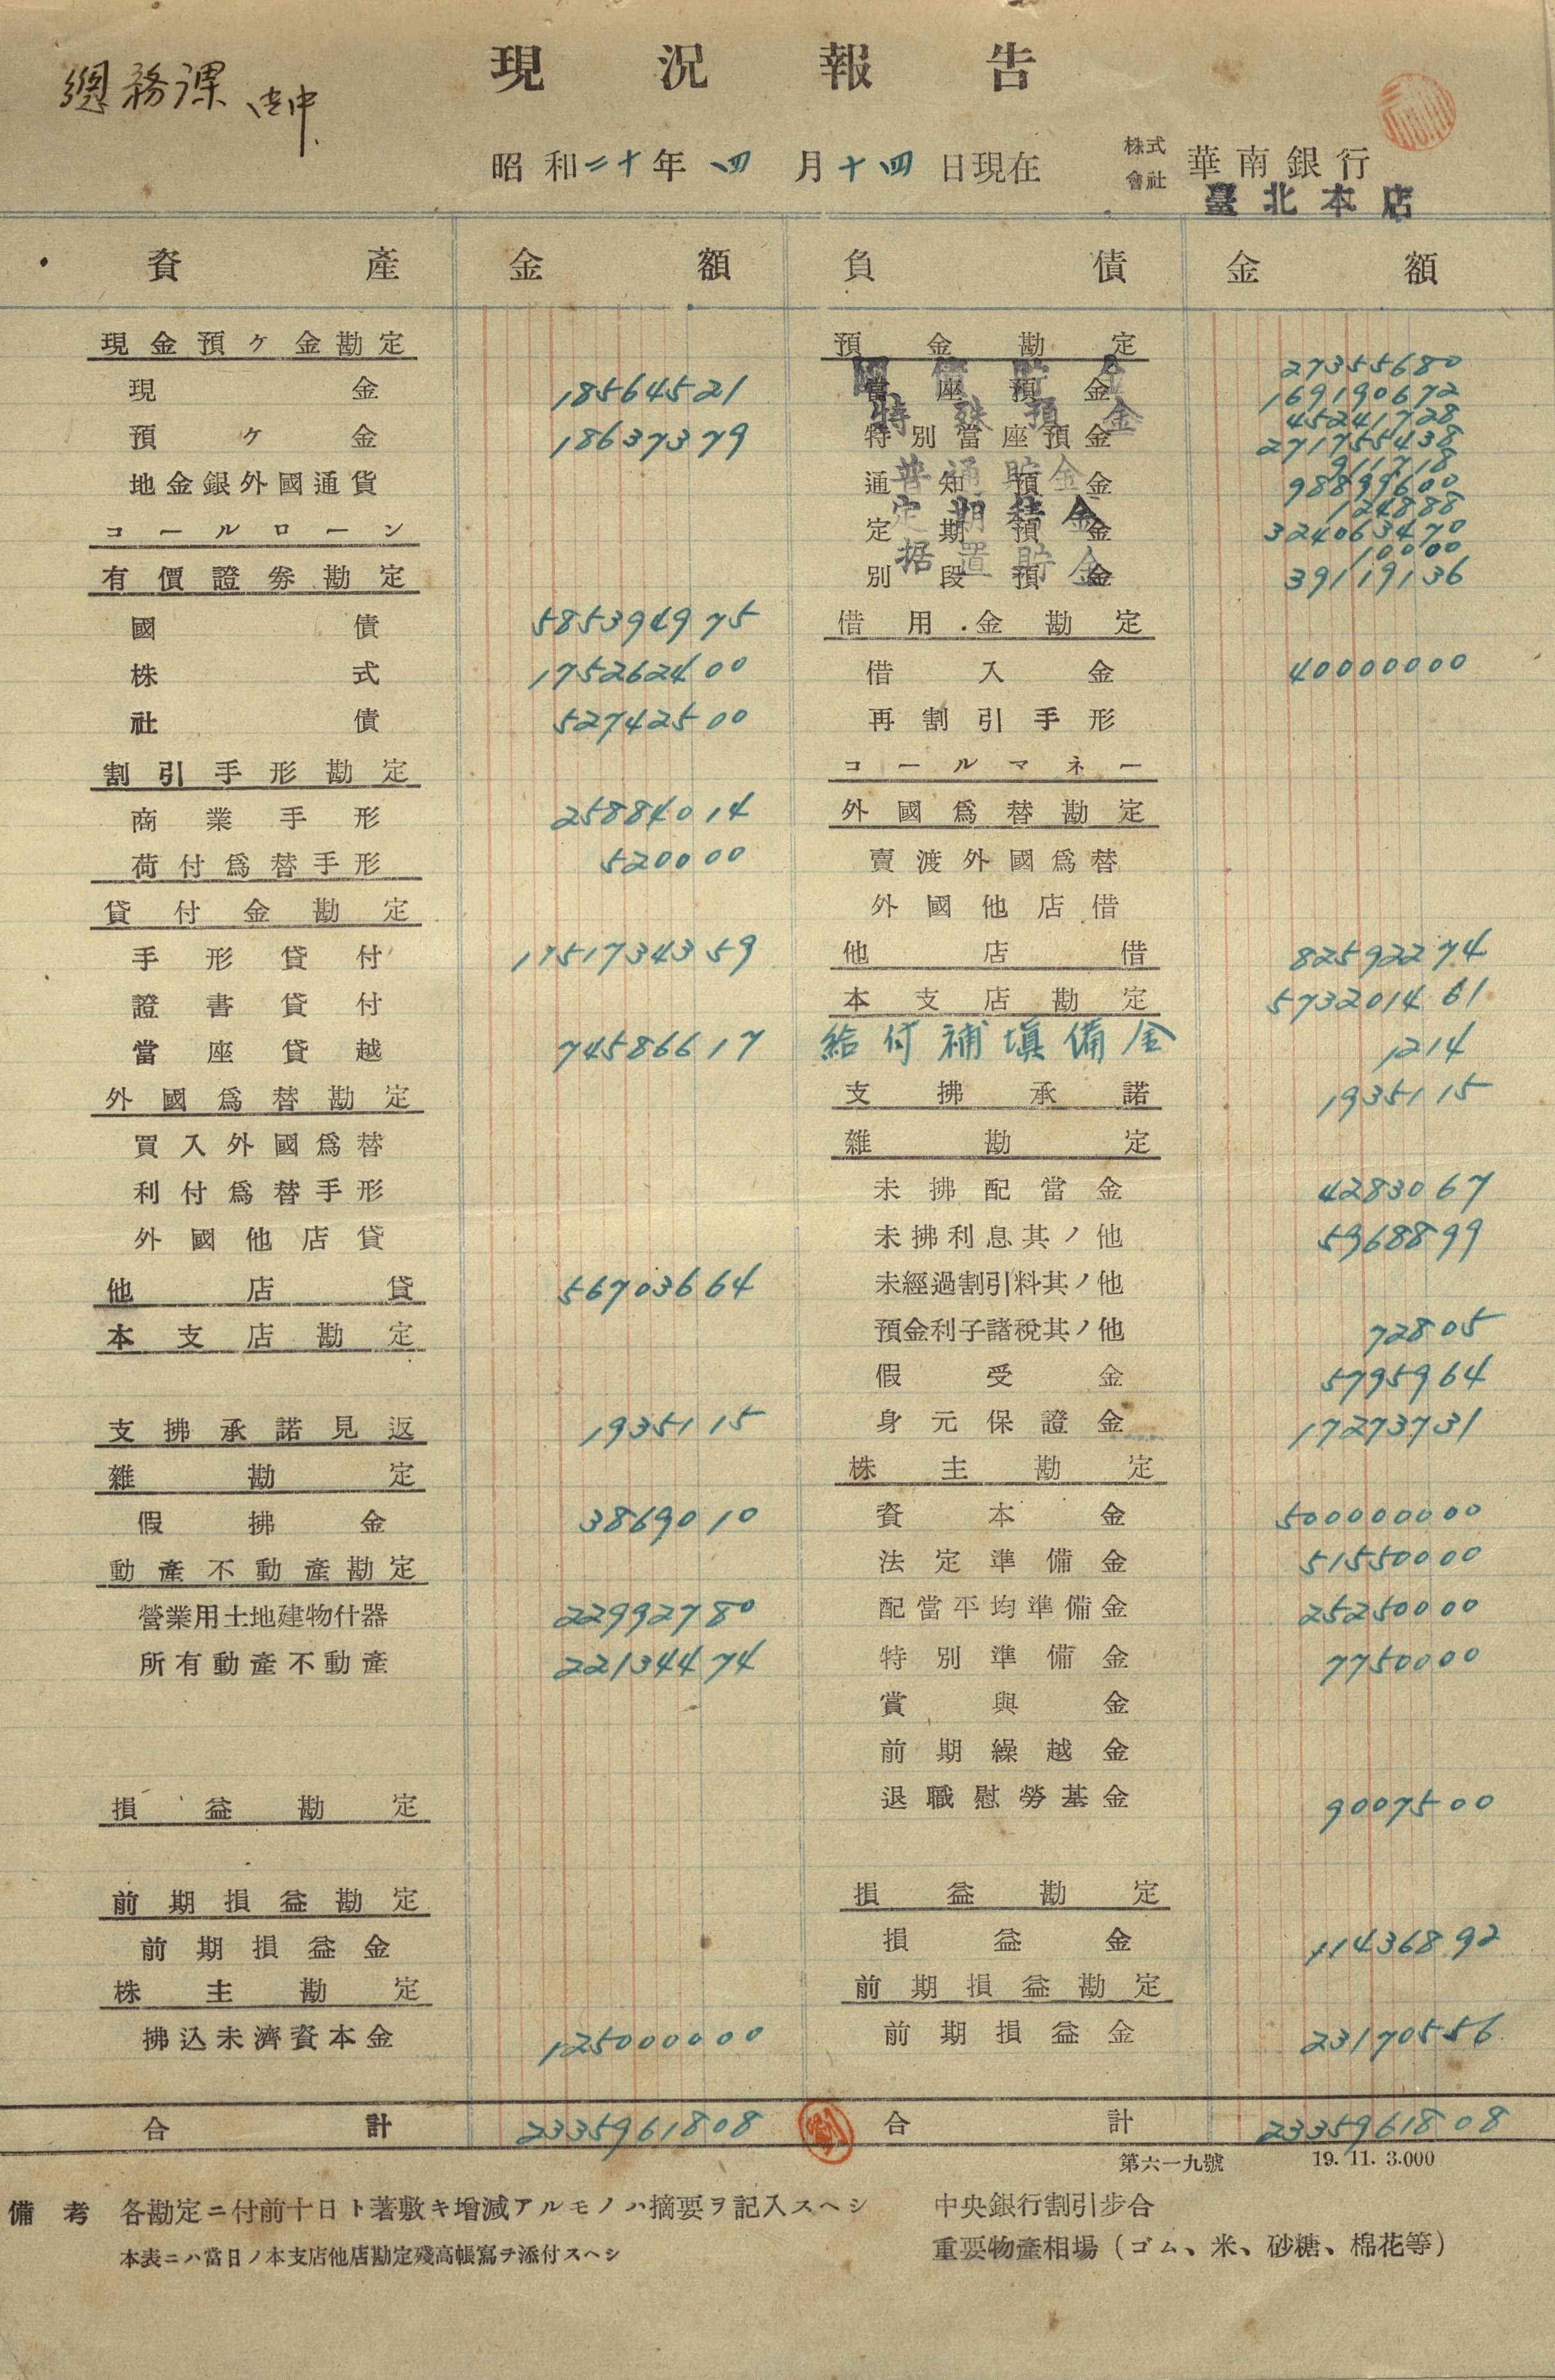 現況報告
總務課 御中
昭和二十年四月十四日現在
株式會社 華南銀行
臺北本店
資產 金額 負債 金額
現金預ケ金勘定
現金 18564521
預ケ金 18637379
地金銀外國通貨
コールローン
有價證券勘定
國債 585394975
株式 175262400
社債 52742500
割引手形勘定
商業手形 25884014
荷付爲替手形 520000
貸付金勘定
手形貸付 1151734359
證書貸付
當座貸越 74586617
外國爲替勘定
買入外國爲替
利付爲替手形
外國他店貸
他店貸 56703664
本支店勘定
支拂承諾見返 1935115
雜勘定
假拂金 3869010
動產不動產勘定
營業用土地建物什器 22992780
所有動產不動產 22134474
損益勘定
前期損益勘定
前期損益金
株主勘定
拂込未濟資本金 125000000
合計 2335961808
預金勘定
國債貯金 27355680
當座預金 169190672
特殊預金 45241728
特別當座預金 271755438
普通貯金 911718
通知預金 98899600
定期積金 124888
定期預金 324063470
据置貯金 10000
別段預金 39119136
借用金勘定
借入金 40000000
再割引手形
コールマネー
外國爲替勘定
賣渡外國爲替
外國他店借
他店借 82592274
本支店勘定 573201461
給付補塡備金 1214
支拂承諾 1935115
雜勘定
未拂配當金 4283067
未拂利息其ノ他 5968899
未經過割引料其ノ他
預金利子諸稅其ノ他 72805
假受金 5795964
身元保證金 17273731
株主勘定
資本金 500000000
法定準備金 51550000
配當平均準備金 25250000
特別準備金 7750000
賞與金
前期繰越金
退職慰勞基金 9007500
損益勘定
損益金 11436892
前期損益勘定
前期損益金 23170556
合計 2335961808
劉
第六一九號 19. 11. 3.000
備考 各勘定ニ付前十日ト著敷キ增減アルモノハ摘要ヲ記入スヘシ
本表ニハ當日ノ本支店他店勘定殘高帳寫ヲ添付スヘシ
中央銀行割引步合
重要物產相場(ゴム、米、砂糖、棉花等)